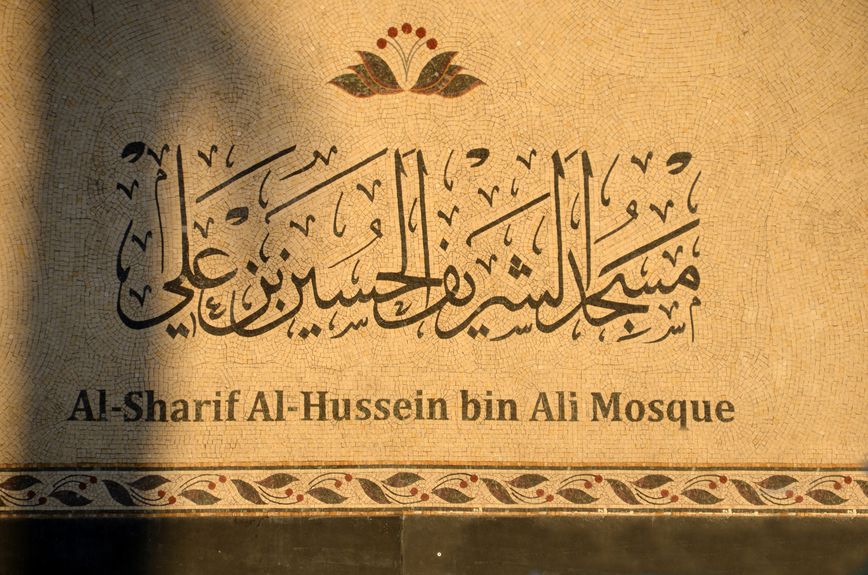 مسجد الشريف الحسين بن علي
Al-Sharif Al-Hussein bin Ali Mosque